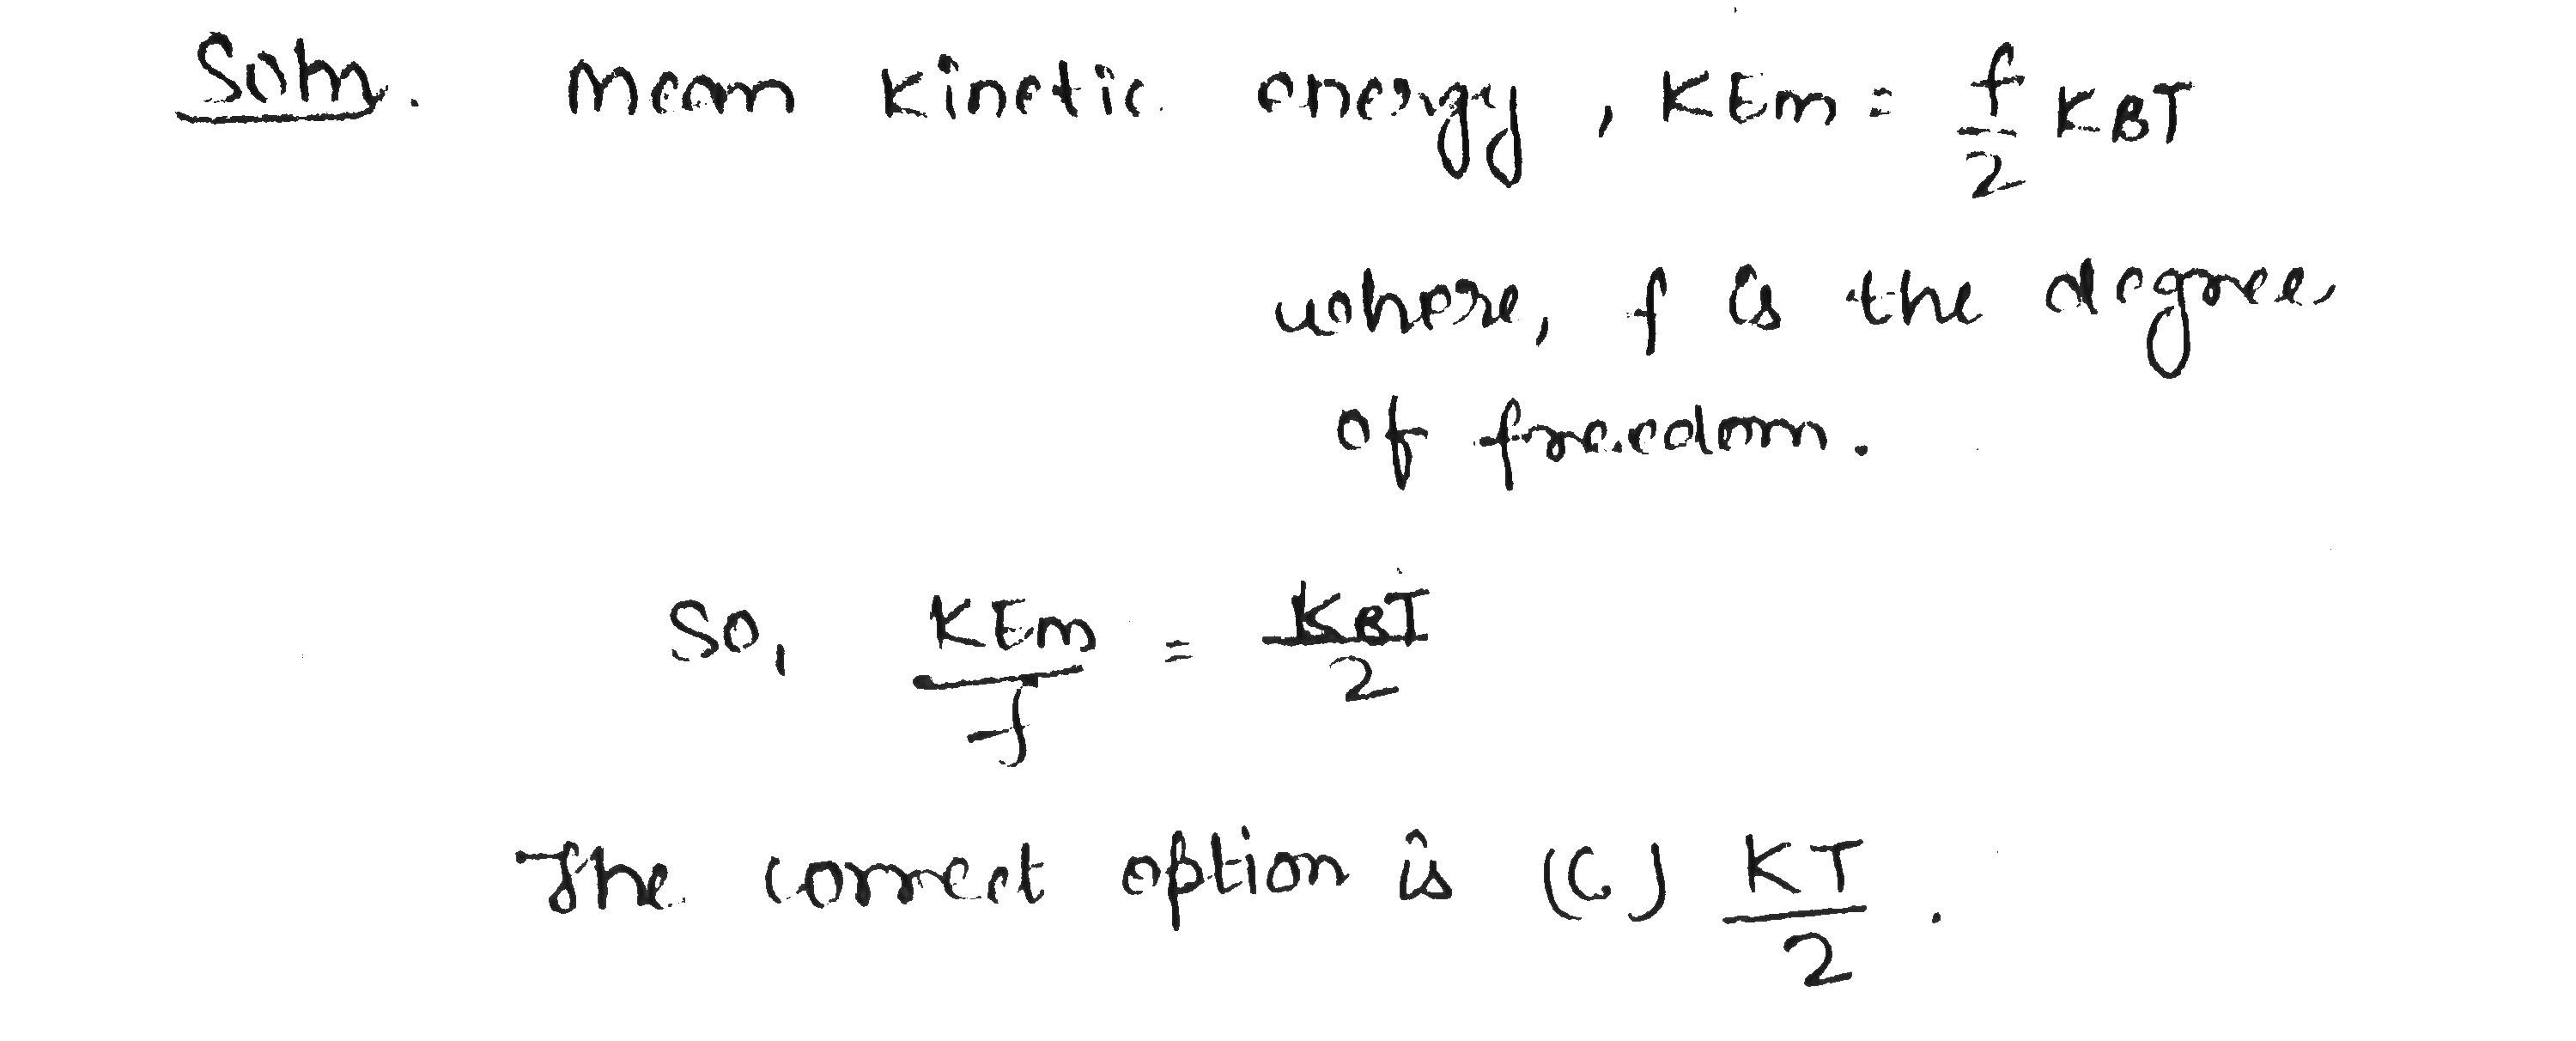 Soln. Mean kinetic energy, KEm = f/2 KBT
where, f is the degree
of freedom.
So, KEm/f = KBT/2
The correct option is (C) KT/2.